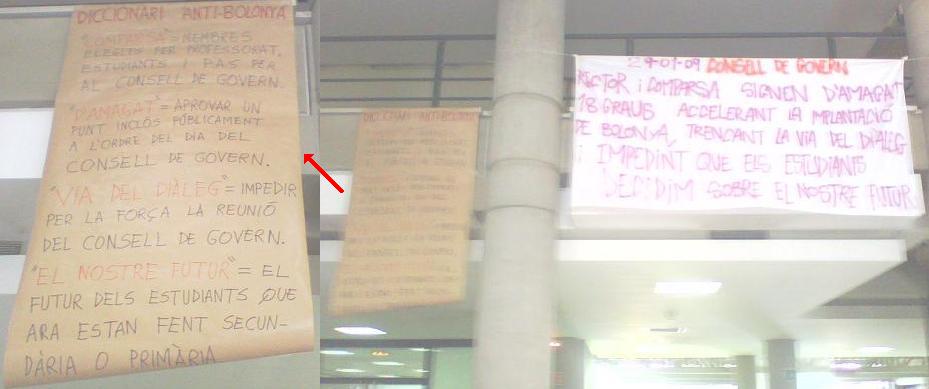 DICCIONARI ANTI-BOLONYA
"COMPARSA" = MEMBRES
ELEGITS PER PROFESSORAT,
ESTUDIANTS I PAS PER
AL CONSELL DE GOVERN.
"D'AMAGAT" = APROVAR UN
PUNT INCLÒS PÚBLICAMENT
A L'ORDRE DEL DIA DEL
CONSELL DE GOVERN.
"VIA DEL DIÀLEG" = IMPEDIR
PER LA FORÇA LA REUNIÓ
DEL CONSELL DE GOVERN.
"EL NOSTRE FUTUR" = EL
FUTUR DELS ESTUDIANTS QUE
ARA ESTAN FENT SECUN-
DÀRIA O PRIMÀRIA
DICCIONARI ANTI-BOLONYA
29-01-09 CONSELL DE GOVERN
RECTOR i COMPARSA SIGNEN D'AMAGAT
18 GRAUS ACCELERANT LA IMPLANTACIÓ
DE BOLONYA, TRENCANT LA VIA DEL DIÀLEG
i IMPEDINT QUE ELS ESTUDIANTS
DECIDIM SOBRE EL NOSTRE FUTUR